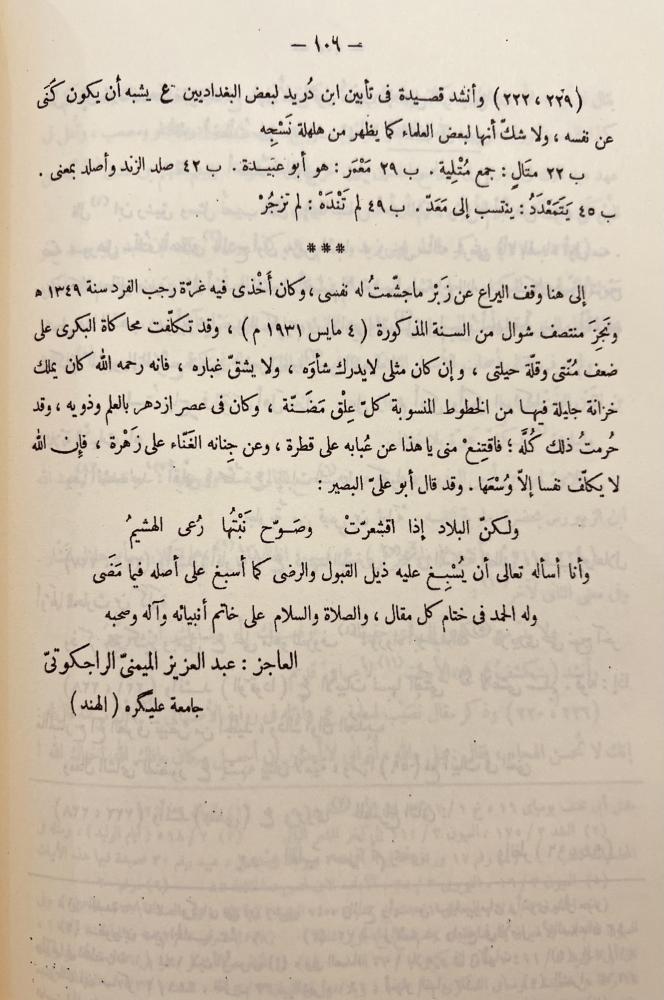 — ١٠٦ —
(٢٢٩، ٢٢٢) وأنشد قصيدة فى تأبين ابن دُريد لبعض البغداديين ع يشبه أن يكون كُنَى
عن نفسه ، ولا شكّ أنها لبعض العلماء كما يظهر من هلهلة نَسْجِه
ب ٢٢ متَالٍ : جمع مُتْلِية . ب ٢٩ مَعْمَر : هو أبو عبيدة . ب ٤٢ صلد الزند وأصلد بمعنى .
ب ٤٥ يَتَمَعْدَدُ : ينتسب إلى مَعَدّ . ب ٤٩ لم تَنْدَهْ : لم تزجُرْ
***
إلى هنا وقف اليراع عن زَبْر ماجشّمتُ له نفسى ، وكان أَخْذى فيه غرّة رجب الفرد سنة ١٣٤٩ ه
ونَجِزَ منتصف شوال من السنة المذكورة (٤ مايس ١٩٣١ م) ، وقد تكلّفت محاكاة البكرى على
ضعف مُنّتى وقلّة حيلتى ، وإن كان مثلى لايدرك شأوَه ، ولا يشقّ غباره ، فانه رحمه الله كان يملك
خزانة جليلة فيها من الخطوط المنسوبة كلّ عِلْق مَضَنّة ، وكان فى عصر ازدهر بالعلم وذويه ، وقد
حُرمتُ ذلك كُلَّه ؛ فاقتنِعْ منى ياهذا عن عُبابه على قطرة ، وعن جِنانه الغَنّاء على زَهْرة ، فإن الله
لا يكلّف نفسا إلاّ وُسْعَها . وقد قال أبو علىّ البصير :
ولكنّ البلاد إذا اقشعرّتْ وصَوّح نَبْتُها رُعى الهشيمُ
وأنا أسأله تعالى أن يُسْبِغ عليه ذيل القبول والرضى كما أسبغ على أصله فيما مَضَى
وله الحمد فى ختام كل مقال ، والصلاة والسلام على خاتم أنبيائه وآله وصحبه
العاجز : عبد العزيز الميمنىّ الراجكوتىّ
جامعة عليگره (الهند)